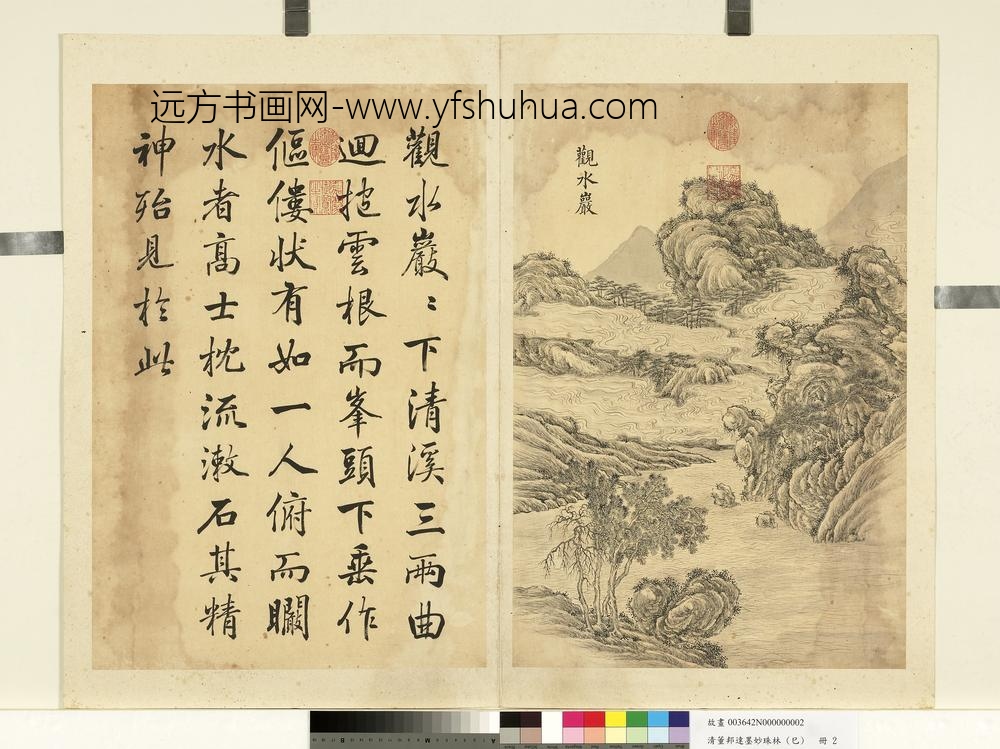 远方书画网-www.yfshuhua.com
觀水巖
觀水巖〻下清溪三兩曲
迴抱雲根而峯頭下垂作
傴僂状有如一人俯而瞰
水者高士枕流漱石其精
神殆見於此
故畫 003642N000000002
清董邦達墨妙珠林（巳） 冊 2